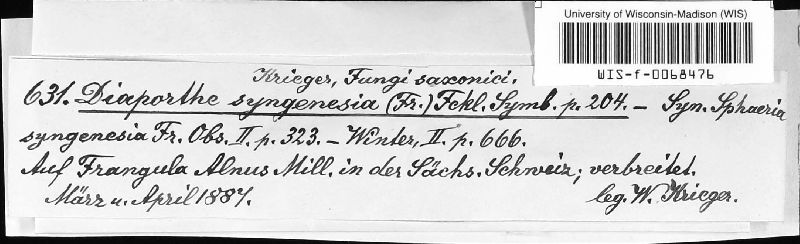 University of Wisconsin-Madison (WIS)
WIS-f-0068476
Krieger, Fungi saxonici.
631. Diaporthe syngenesia (Fr.) Fckl. Symb. p. 204. – Syn. Sphaeria
syngenesia Fr. Obs. II. p. 323. – Winter, II. p. 666.
Auf Frangula Alnus Mill. in der Sächs. Schweiz; verbreitet.
März u. April 1887. leg. W. Krieger.